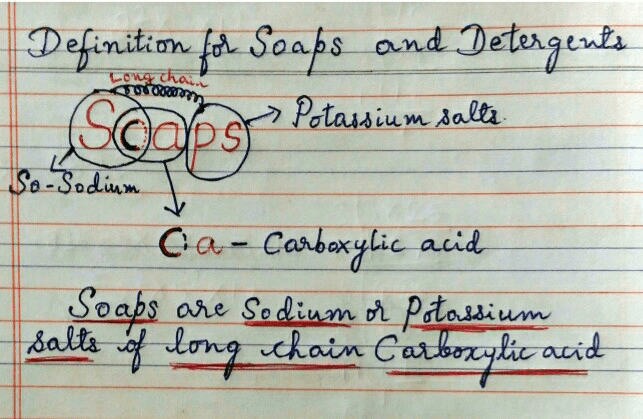 Definition for Soaps and Detergents
Long chain
Soaps → Potassium salts.
So-Sodium
Ca - Carboxylic acid
Soaps are Sodium or Potassium
salts of long chain Carboxylic acid